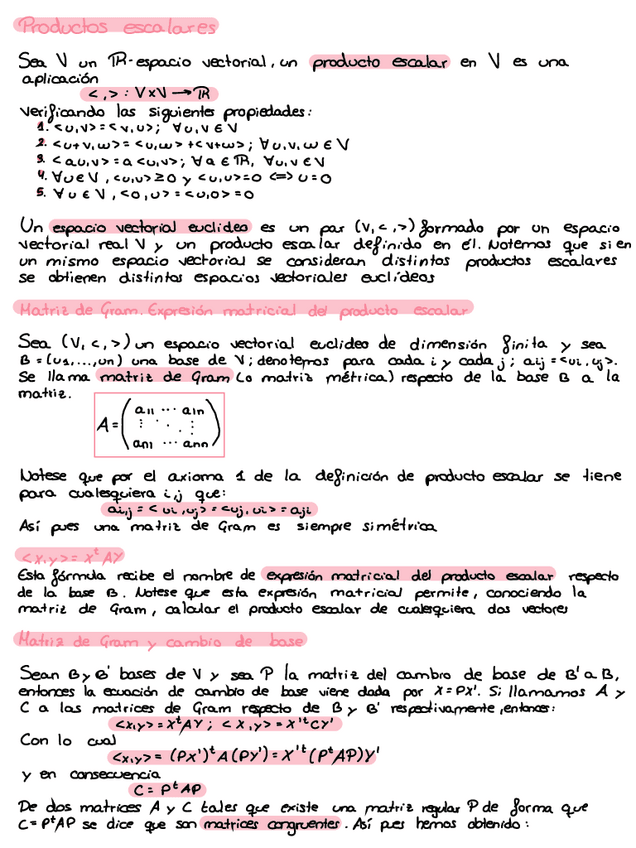 Productos escalares
Sea V un ℝ-espacio vectorial, un producto escalar en V es una
aplicación
<,>: V×V → ℝ
verificando las siguientes propiedades:
1. <u,v> = <v,u>; ∀u,v ∈ V
2. <u+v,w> = <u,w> + <v+w>; ∀u,v,w ∈ V
3. <au,v> = a<u,v>; ∀a ∈ ℝ, ∀u,v ∈ V
4. ∀u∈V, <u,u> ≥ 0 y <u,u> = 0 <=> u = 0
5. ∀u ∈ V, <0,u> = <u,0> = 0
Un espacio vectorial euclideo es un par (V,<,>) formado por un espacio
vectorial real V y un producto escalar definido en él. Notemos que si en
un mismo espacio vectorial se consideran distintos productos escalares
se obtienen distintos espacios vectoriales euclídeos
Matriz de Gram. Expresión matricial del producto escalar
Sea (V,<,>) un espacio vectorial euclideo de dimensión finita y sea
B = (u1,...,un) una base de V; denotemos para cada i y cada j; aij = <ui,uj>.
Se llama matriz de Gram (o matriz métrica) respecto de la base B a la
matriz.
a11 ... a1n
A = ( ⋮ ⋱ ⋮ )
an1 ... ann
Notese que por el axioma 1 de la definición de producto escalar se tiene
para cualesquiera i,j que:
ai,j = <ui,uj> = <uj,ui> = aji
Así pues una matriz de Gram es siempre simétrica
<x,y> = X^t AY
Esta fórmula recibe el nombre de expresión matricial del producto escalar respecto
de la base B. Notese que esta expresión matricial permite, conociendo la
matriz de Gram, calcular el producto escalar de cualesquiera dos vectores
Matriz de Gram y cambio de base
Sean B y B' bases de V y sea P la matriz del cambio de base de B' a B,
entonces la ecuación de cambio de base viene dada por X = PX'. Si llamamos A y
C a las matrices de Gram respecto de B y B' respectivamente, entonces:
<x,y> = X^t AY ; <x,y> = X'^t CY'
Con lo cual
<x,y> = (PX')^t A(PY') = X'^t (P^t AP)Y'
y en consecuencia
C = P^t AP
De dos matrices A y C tales que existe una matriz regular P de forma que
C = P^t AP se dice que son matrices congruentes. Así pues hemos obtenido: